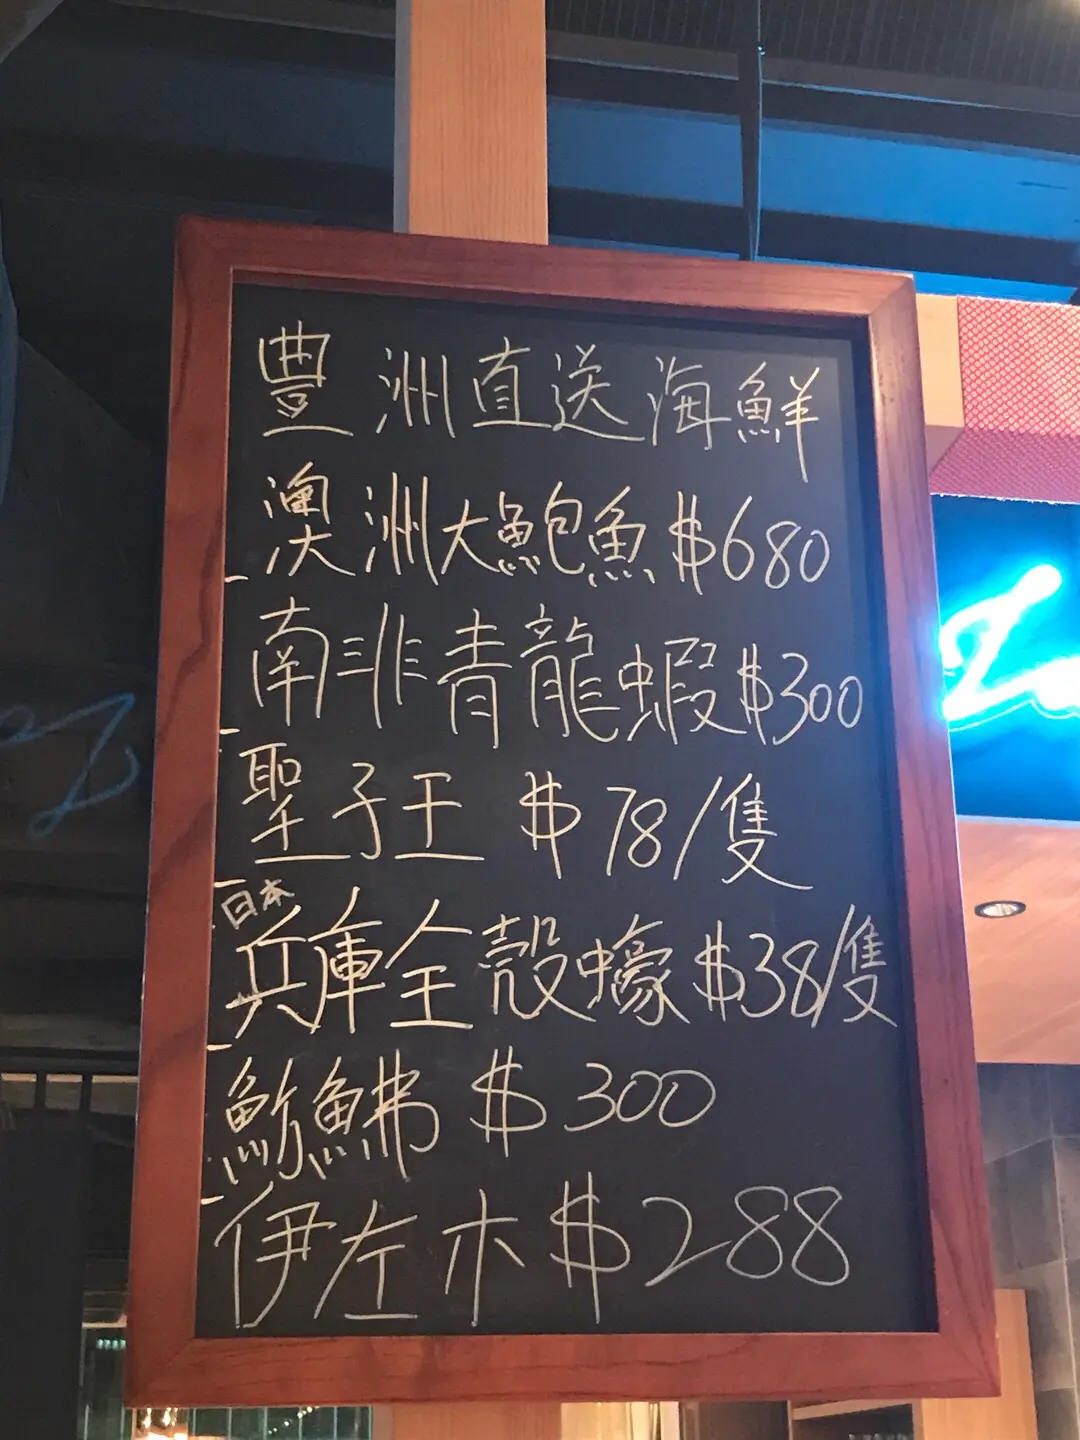 豐洲直送海鮮
澳洲大鮑魚$680
南非青龍蝦$300
聖子王 $78/隻
日本
兵庫全殼蠔$38/隻
魴鮄 $300
伊左木$288